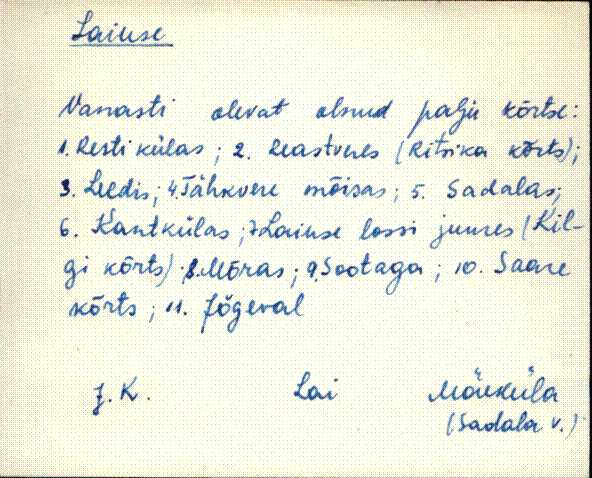 Laiuse
Vanasti olevat olnud palju kõrtse:
1. Resti külas; 2. Reastveres (Ritsika kõrts);
3. Leedis; 4. Tähkvere mõisas; 5. Sadalas;
6. Kantkülas; 7. Laiuse lossi juures (Kil-
gi kõrts); 8. Mõras; 9. Sootaga; 10. Saare
kõrts; 11. Jõgeval
J. K. Lai Mõrküla
(Sadala v.)